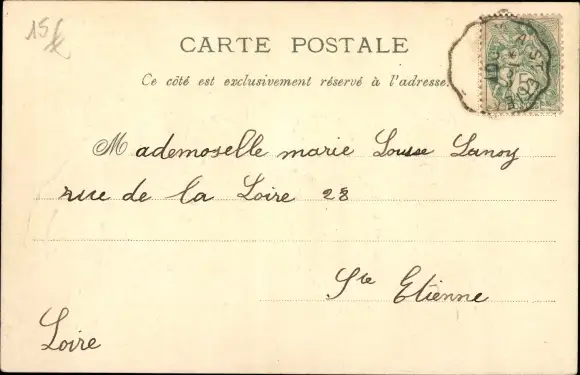 15
CARTE POSTALE
Ce côté est exclusivement réservé à l'adresse.
Mademoselle marie Louise Lanoy
rue de la Loire 28
Ste Etienne
Loire